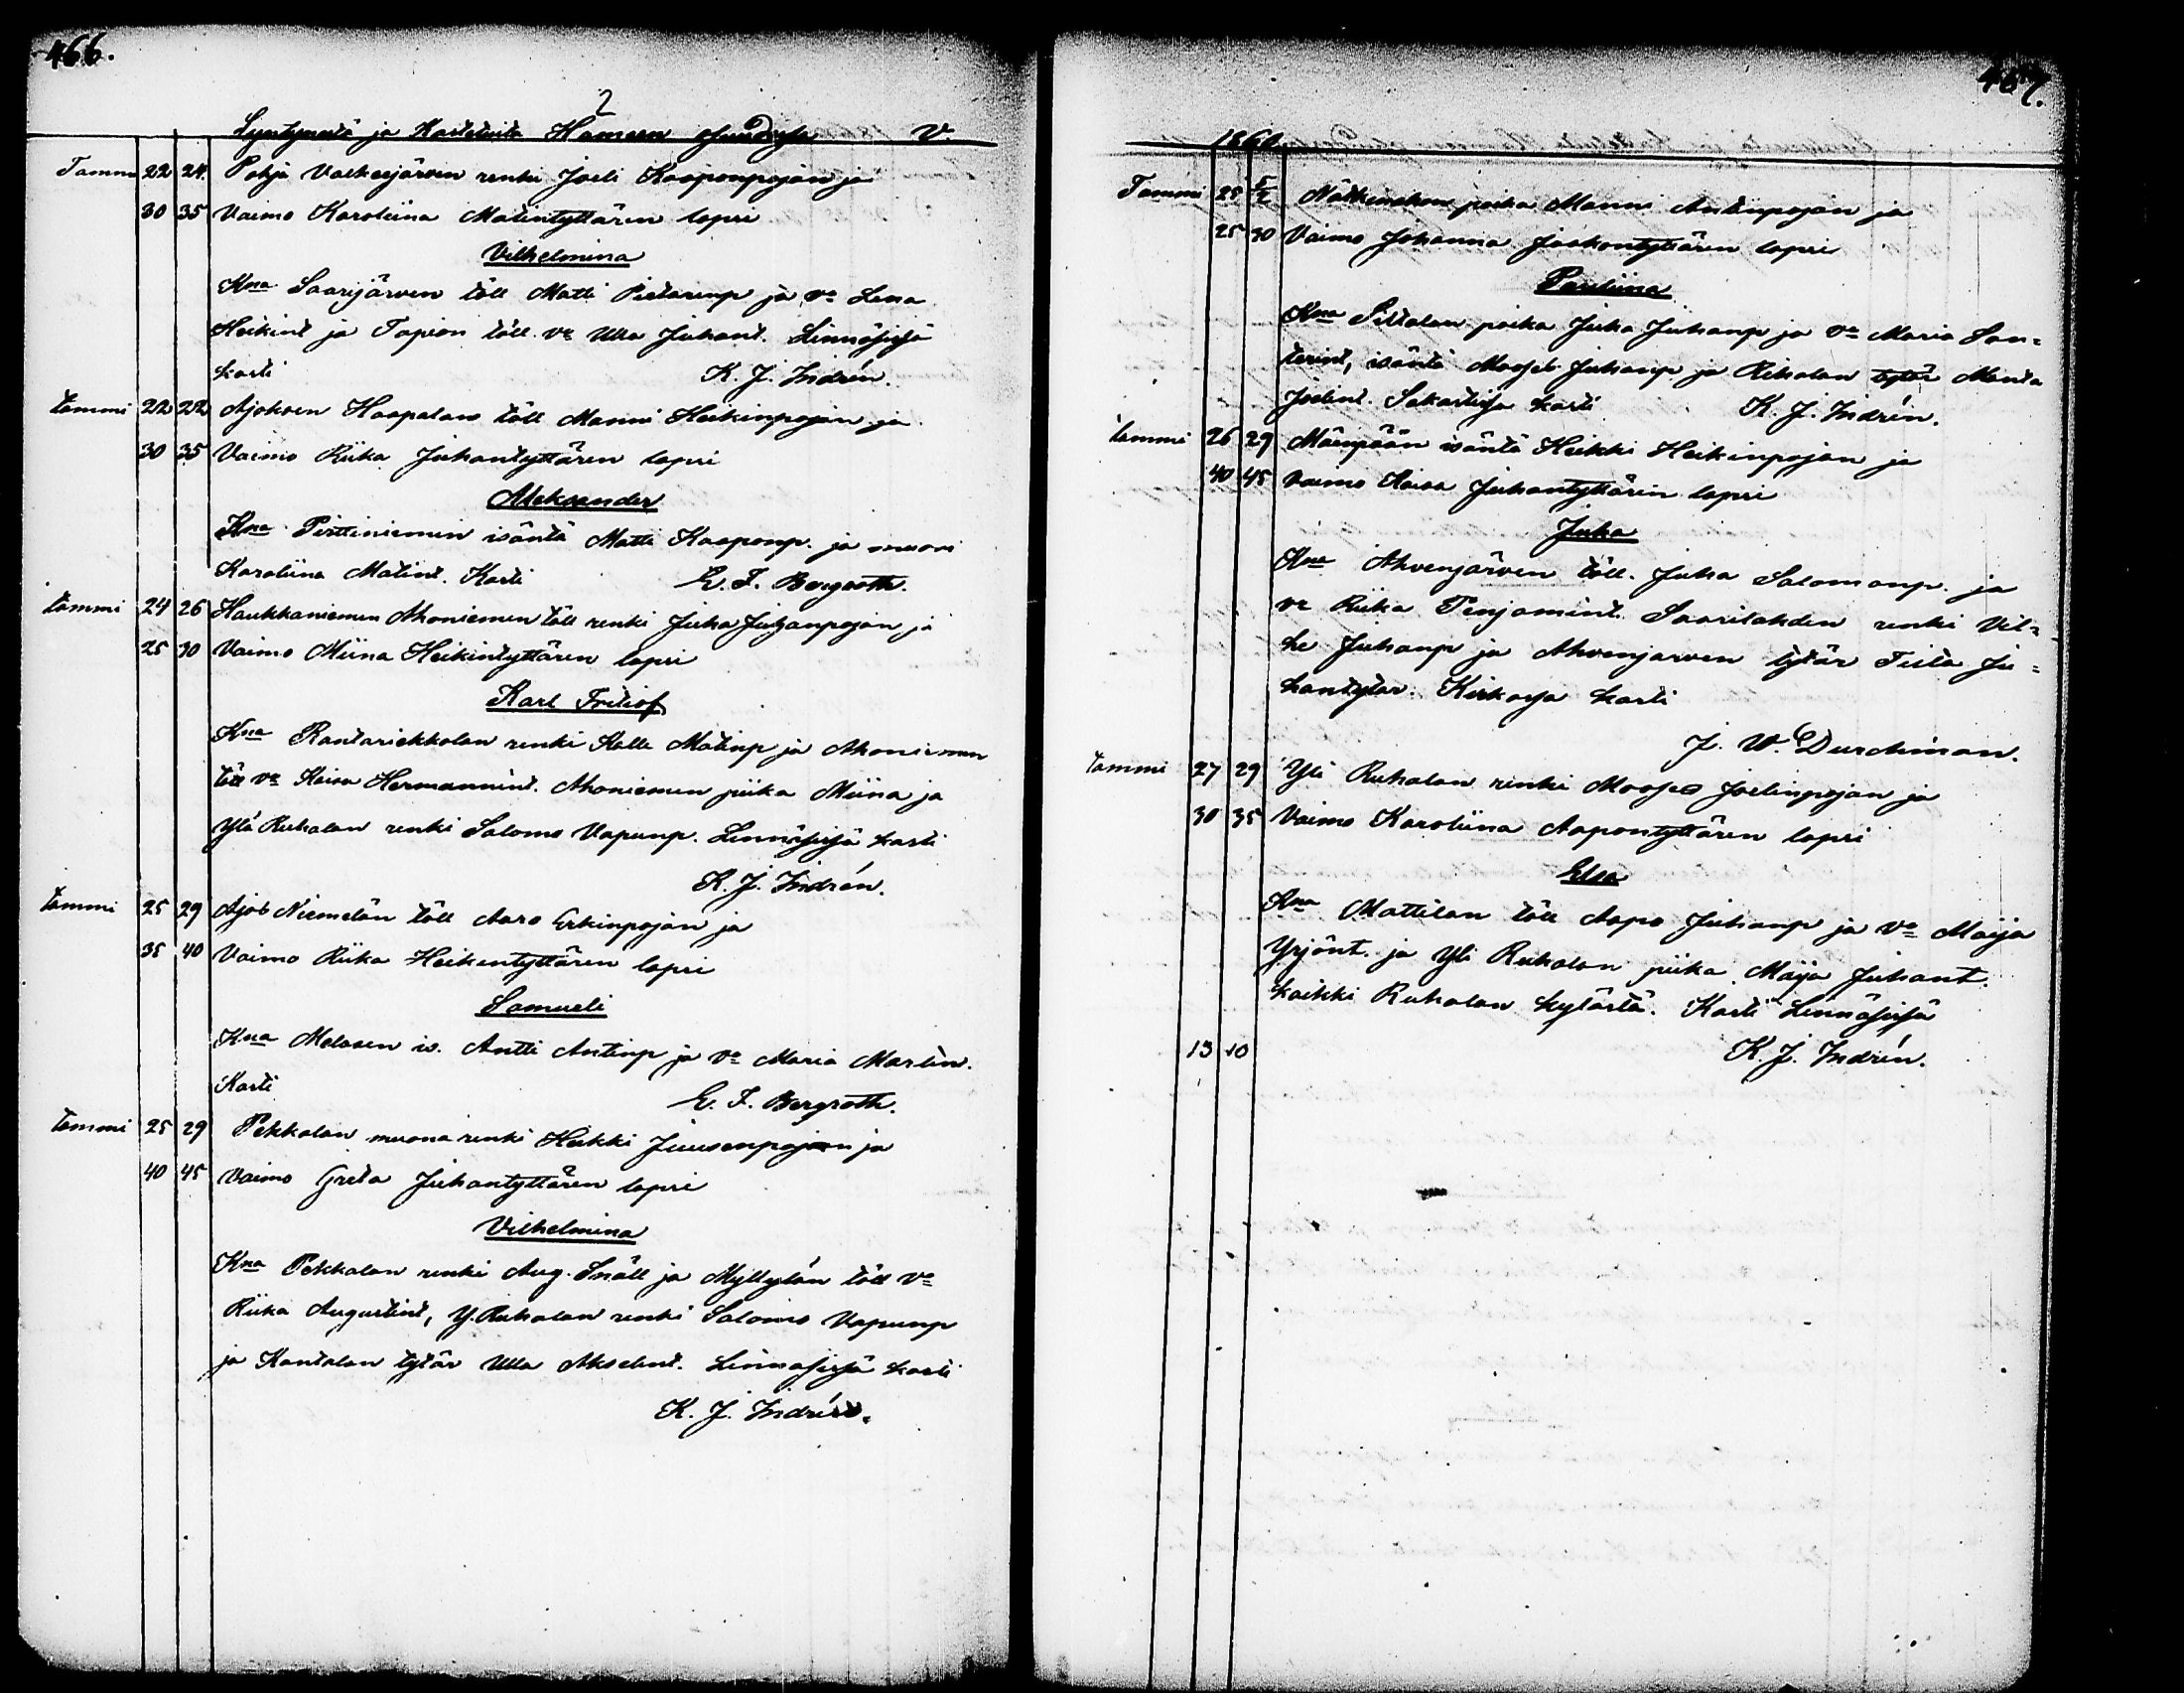 466.
2
Syntyneitä ja Kastetuita Hämeen V.
Tammi 22 24. Pohja Valkeejärven renki Joeli Kaaponpojan ja
30 35 Vaimo Karoliina Matintyttären lapsi
Vilhelmina
Kna Saarijärven töll Matti Pietarinp ja va Lena
Heikint ja Tapion töll. va Ulla Juhant. Linnäsissä
kasti K. J. Indrén.
tammi 22 22 Ajoksen Haapalan töll Manni Heikinpojan ja
30 35 Vaimo Riika Juhantyttären lapsi
Aleksander
Kna Pirttiniemin isäntä Matti Kaaponp. ja muori
Karoliina Matint. Kasti E. F. Bergroth.
tammi 24 26 Haukkaniemen Ahoniemen töll renki Juha Juhanpojan ja
25 30 Vaimo Miina Heikintyttären lapsi
Karl Fritiof
Kna Rantariekkolan renki Kalle Matinp ja Ahoniemen
töll va Kaisa Hermannint. Ahoniemen piika Miina ja
Ylä Ruhalan renki Salomo Vapunp. Linnäsissä kasti
K. J. Indrén.
tammi 25 29 Ajos Niemelän töll Aaro Erkinpojan ja
35 40 Vaimo Riika Heikintyttären lapsi
Samueli
Kna Melasen is. Antti Antinp ja va Maria Martin.
Kasti E. F. Bergroth.
tammi 25 29 Pekkalan muona renki Heikki Juusenpojan ja
40 45 Vaimo Greta Juhantyttären lapsi
Vilhelmina
Kna Pekkalan renki Aug. Snäll ja Myllylän töll va
Riika Augustint, Y. Ruhalan renki Salomo Vapunp
ja Kantalan tytär Ulla Akselint. Linnäsissä kasti
K. J. Indrén.
467.
1860.
Tammi 25 5/2 poika Manni Antinpojan ja
25 30 Vaimo Johanna Jaakontyttären lapsi
Pauliina
Kna Pittalan poika Juha Juhanp ja va Maria San=
terint, isäntä Mooses Juhanp ja Rihalan tytär Manta
Joelint. Sakastissa kasti K. J. Indrén.
tammi 26 29 Mäenpään isäntä Heikki Heikinpojan ja
40 45 Vaimo Kaisa Juhantyttären lapsi
Juha
Kna Ahvenjärven töll. Juha Salomonp. ja
va Riika Penjamint. Saarilahden renki Vil=
he Juhanp ja Ahvenjarven tytär Tiita Ju=
hantytar. Kirkossa kasti
J. W. Durchman.
tammi 27 29 Yli Ruhalan renki Mooses Joelinpojan ja
30 35 Vaimo Karoliina Aapontyttären lapsi
Elsa
Kna Mattilan töll Aapo Juhanp ja va Maija
Yrjönt. ja Yli Ruhalan piika Maija Juhant.
kaikki Ruhalan kylästä. Kasti Linnäsissä
13 10 K. J. Indrén.